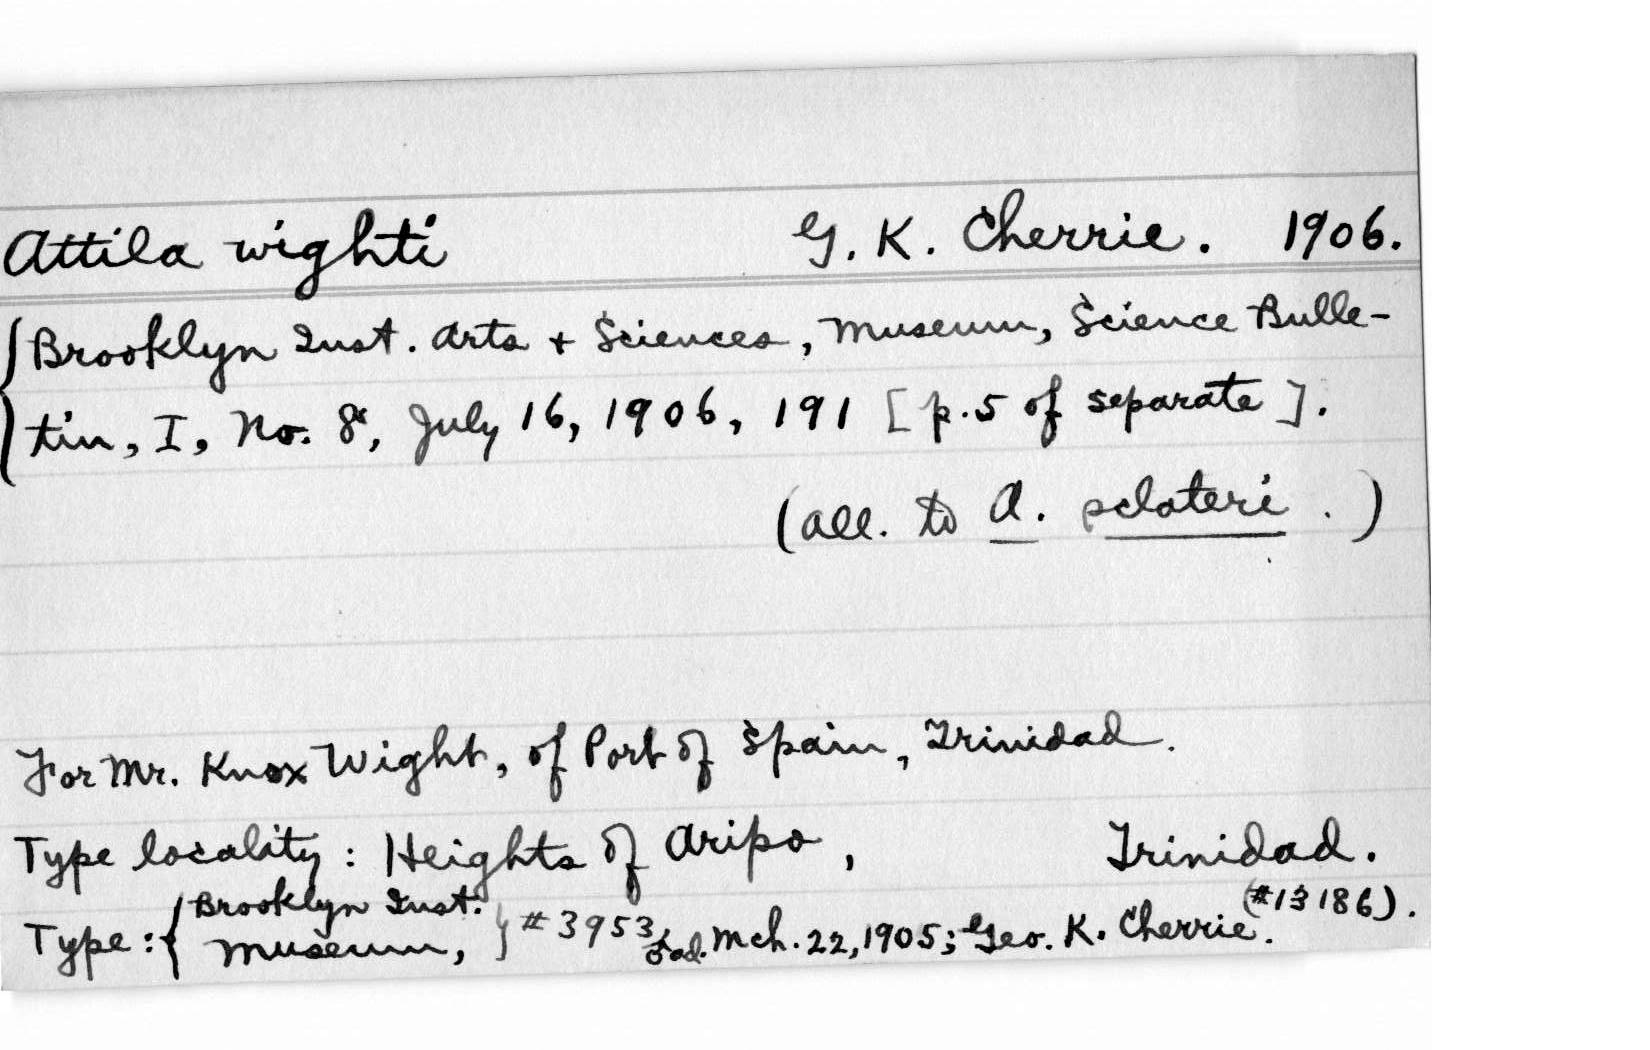 Attila wighti G. K. Cherrie. 1906.
Brooklyn Inst. Arts + Sciences, Museum, Science Bulle-
tin, I, No. 8, July 16, 1906, 191 [p. 5 of separate].
(all. to A. sclateri.)
For Mr. Knox Wight, of Port of Spain, Trinidad.
Type locality: Heights of Aripo, Trinidad.
Type: { Brooklyn Inst. Museum, } #3953, ♂ ad. Mch. 22, 1905; Geo. K. Cherrie. (#13186).